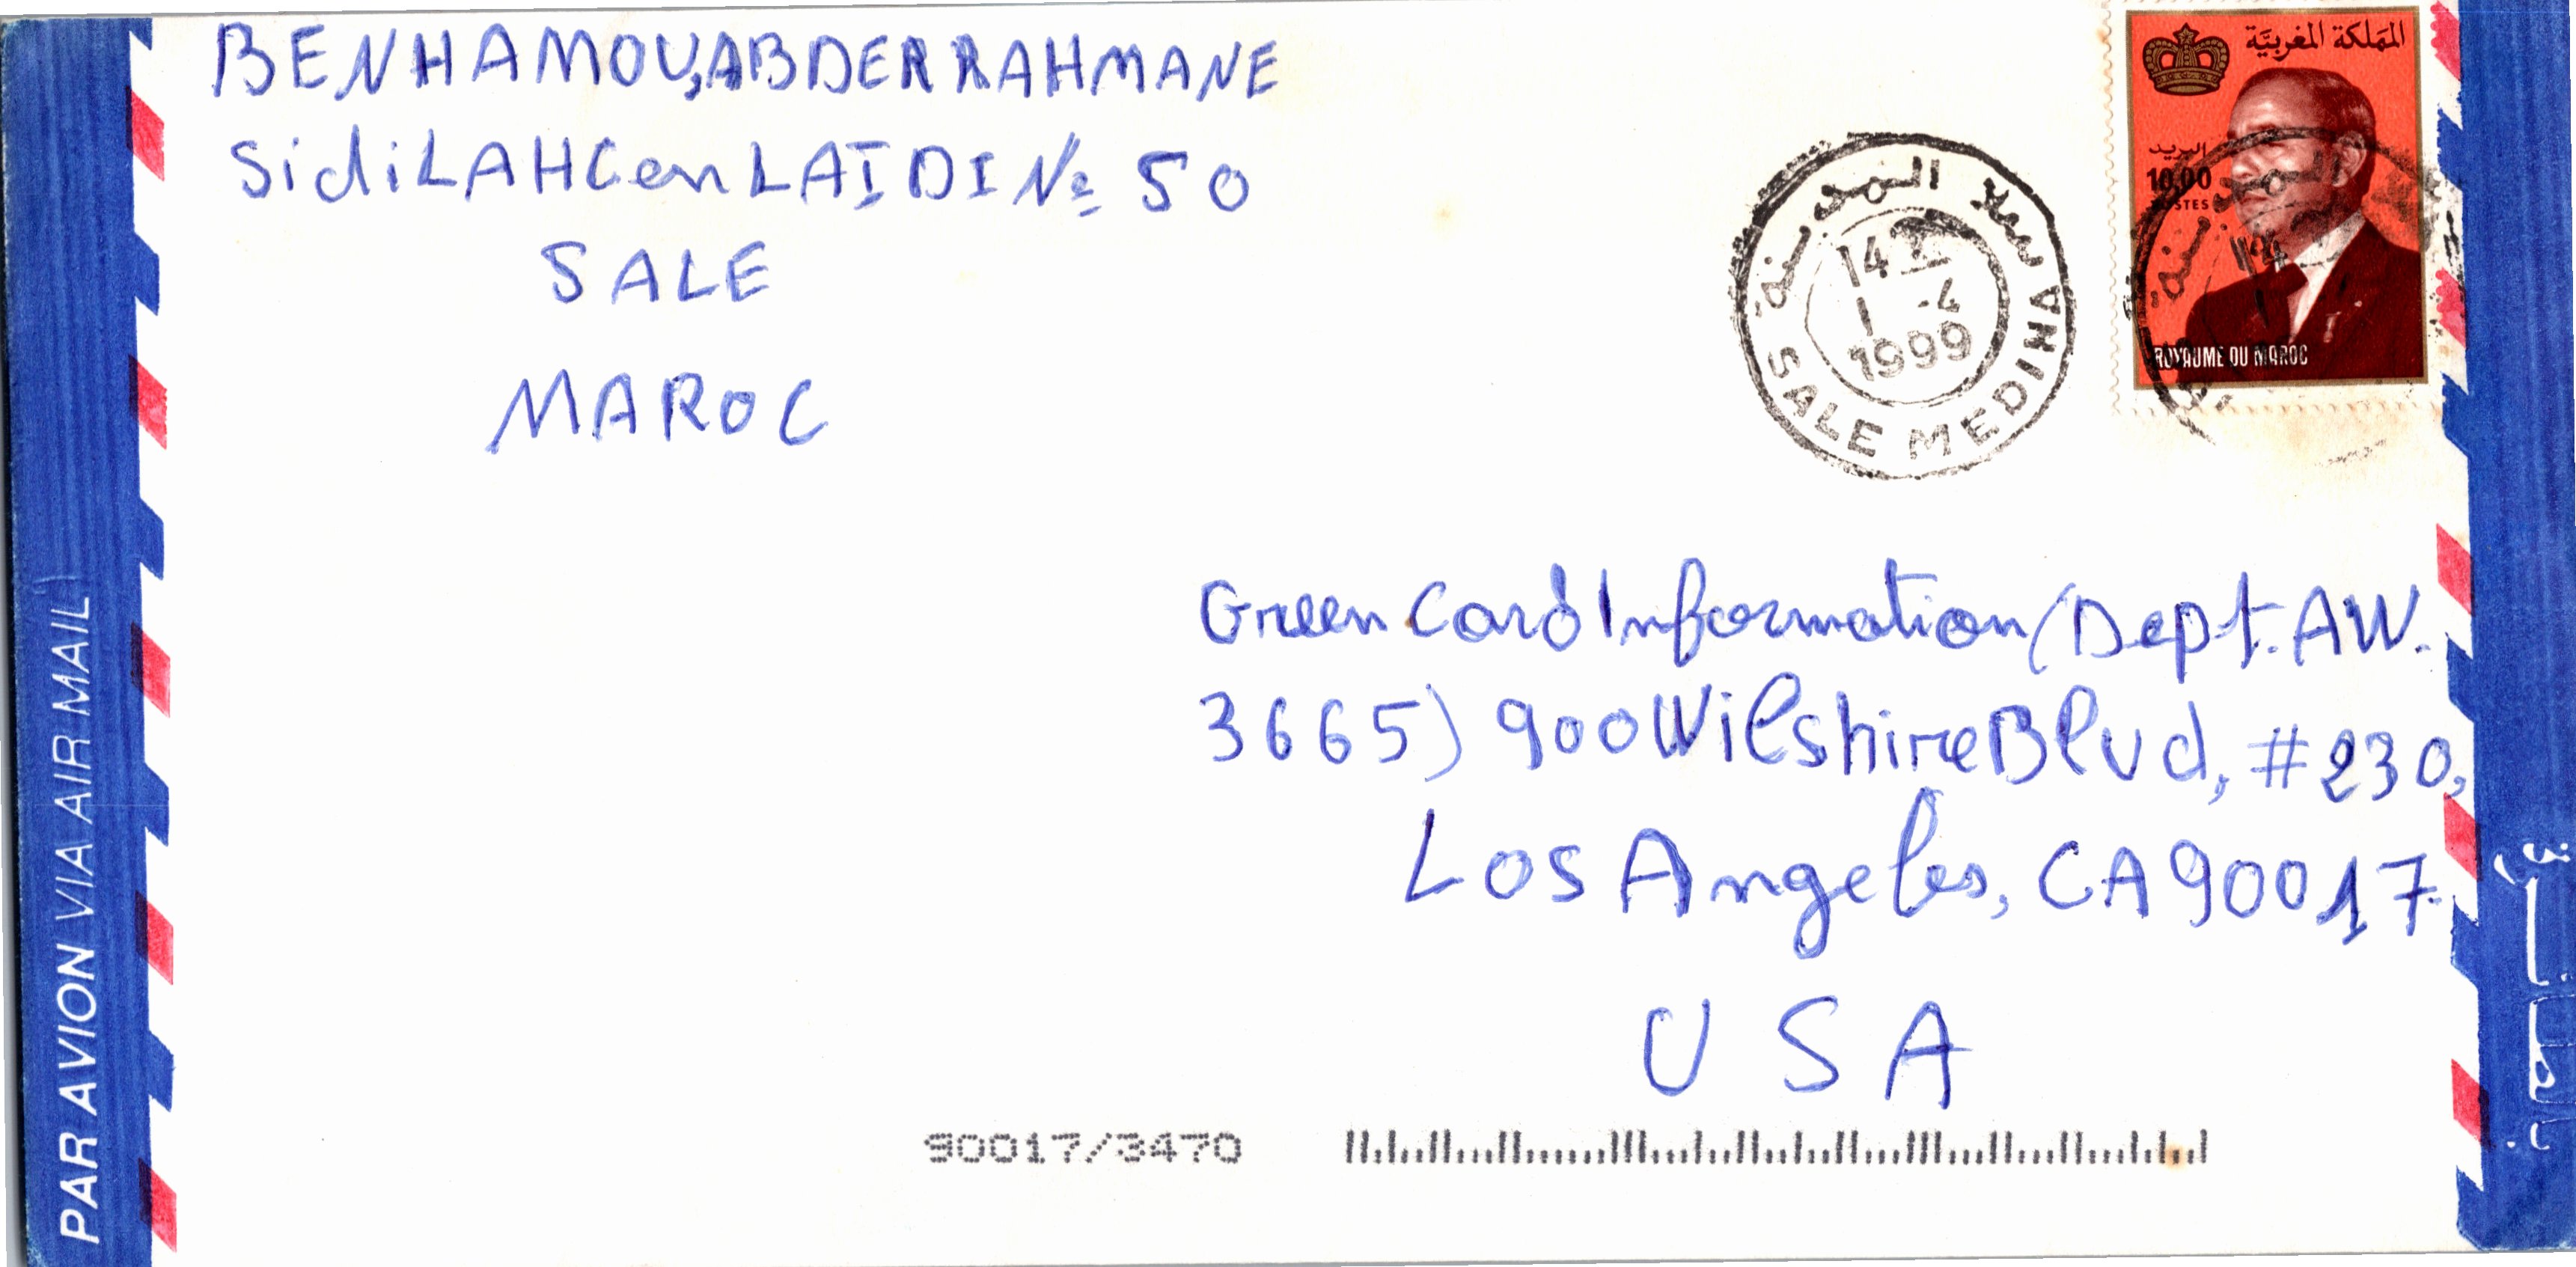 BENHAMOU,ABDERRAHMANE
SidiLAHCenLAÏDI Nº 50
SALE
MAROC
المملكة المغربية
البريد
10,00
POSTES
ROYAUME DU MAROC
سلا المدينة
14
1 .4
1999
SALE MEDINA
Green Card Information/Dept.AW.
3665) 900WilshireBlvd, #230,
Los Angeles, CA90017.
USA
90017/3470
PAR AVION VIA AIR MAIL